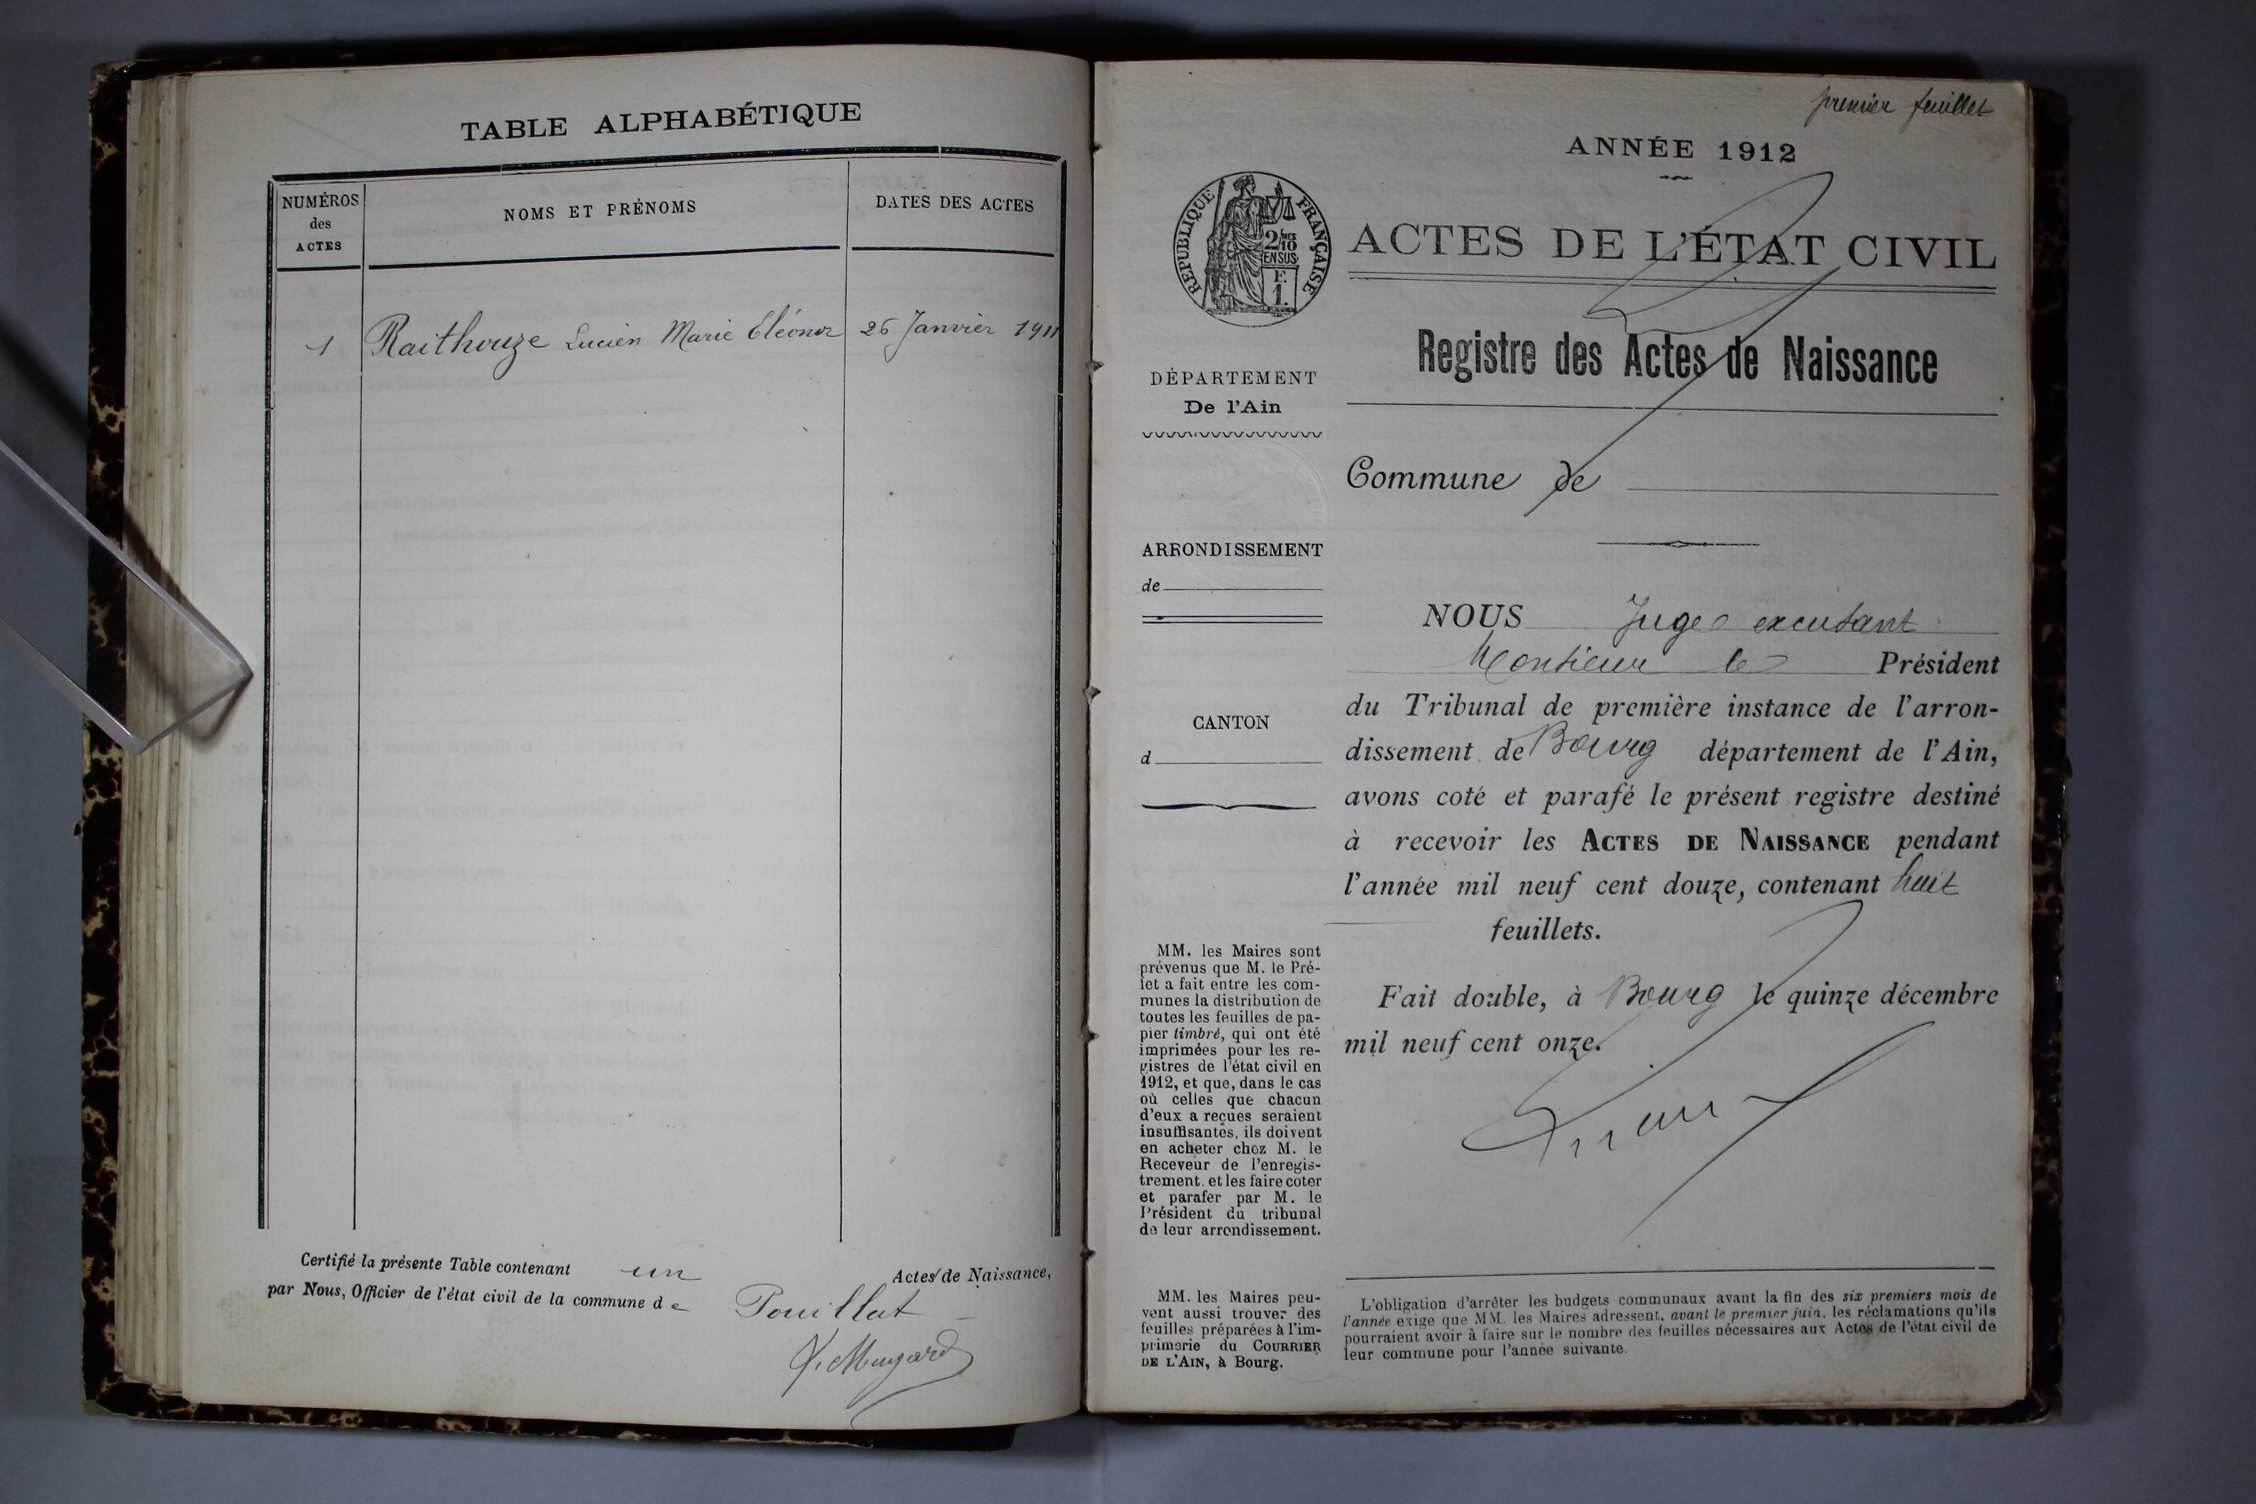 TABLE ALPHABÉTIQUE
NUMÉROS
des
ACTES
NOMS ET PRÉNOMS
DATES DES ACTES
1 Raithouze Lucien Marie Eléonor 26 Janvier 1911
Certifié la présente Table contenant un Actes de Naissance,
par Nous, Officier de l'état civil de la commune de Pouillat
premier feuillet
ANNÉE 1912
REPUBLIQUE FRANÇAISE
2/10
EN SUS
E.
1.
ACTES DE L'ÉTAT CIVIL
Registre des Actes de Naissance
DÉPARTEMENT
De l'Ain
Commune de
ARRONDISSEMENT
de
CANTON
d
NOUS Juge excusant
Monsieur le Président
du Tribunal de première instance de l'arron-
dissement de Bourg département de l'Ain,
avons coté et parafé le présent registre destiné
à recevoir les ACTES DE NAISSANCE pendant
l'année mil neuf cent douze, contenant huit
feuillets.
Fait double, à Bourg le quinze décembre
mil neuf cent onze.
MM. les Maires sont
prévenus que M. le Pré-
fet a fait entre les com-
munes la distribution de
toutes les feuilles de pa-
pier timbré, qui ont été
imprimées pour les re-
gistres de l'état civil en
1912, et que, dans le cas
où celles que chacun
d'eux a reçues seraient
insuffisantes, ils doivent
en acheter chez M. le
Receveur de l'enregis-
trement. et les faire coter
et parafer par M. le
Président du tribunal
de leur arrondissement.
MM. les Maires peu-
vent aussi trouver des
feuilles préparées à l'im-
primerie du COURRIER
DE L'AIN, à Bourg.
L'obligation d'arrêter les budgets communaux avant la fin des six premiers mois de
l'année exige que MM. les Maires adressent, avant le premier juin, les réclamations qu'ils
pourraient avoir à faire sur le nombre des feuilles nécessaires aux Actes de l'état civil de
leur commune pour l'année suivante.